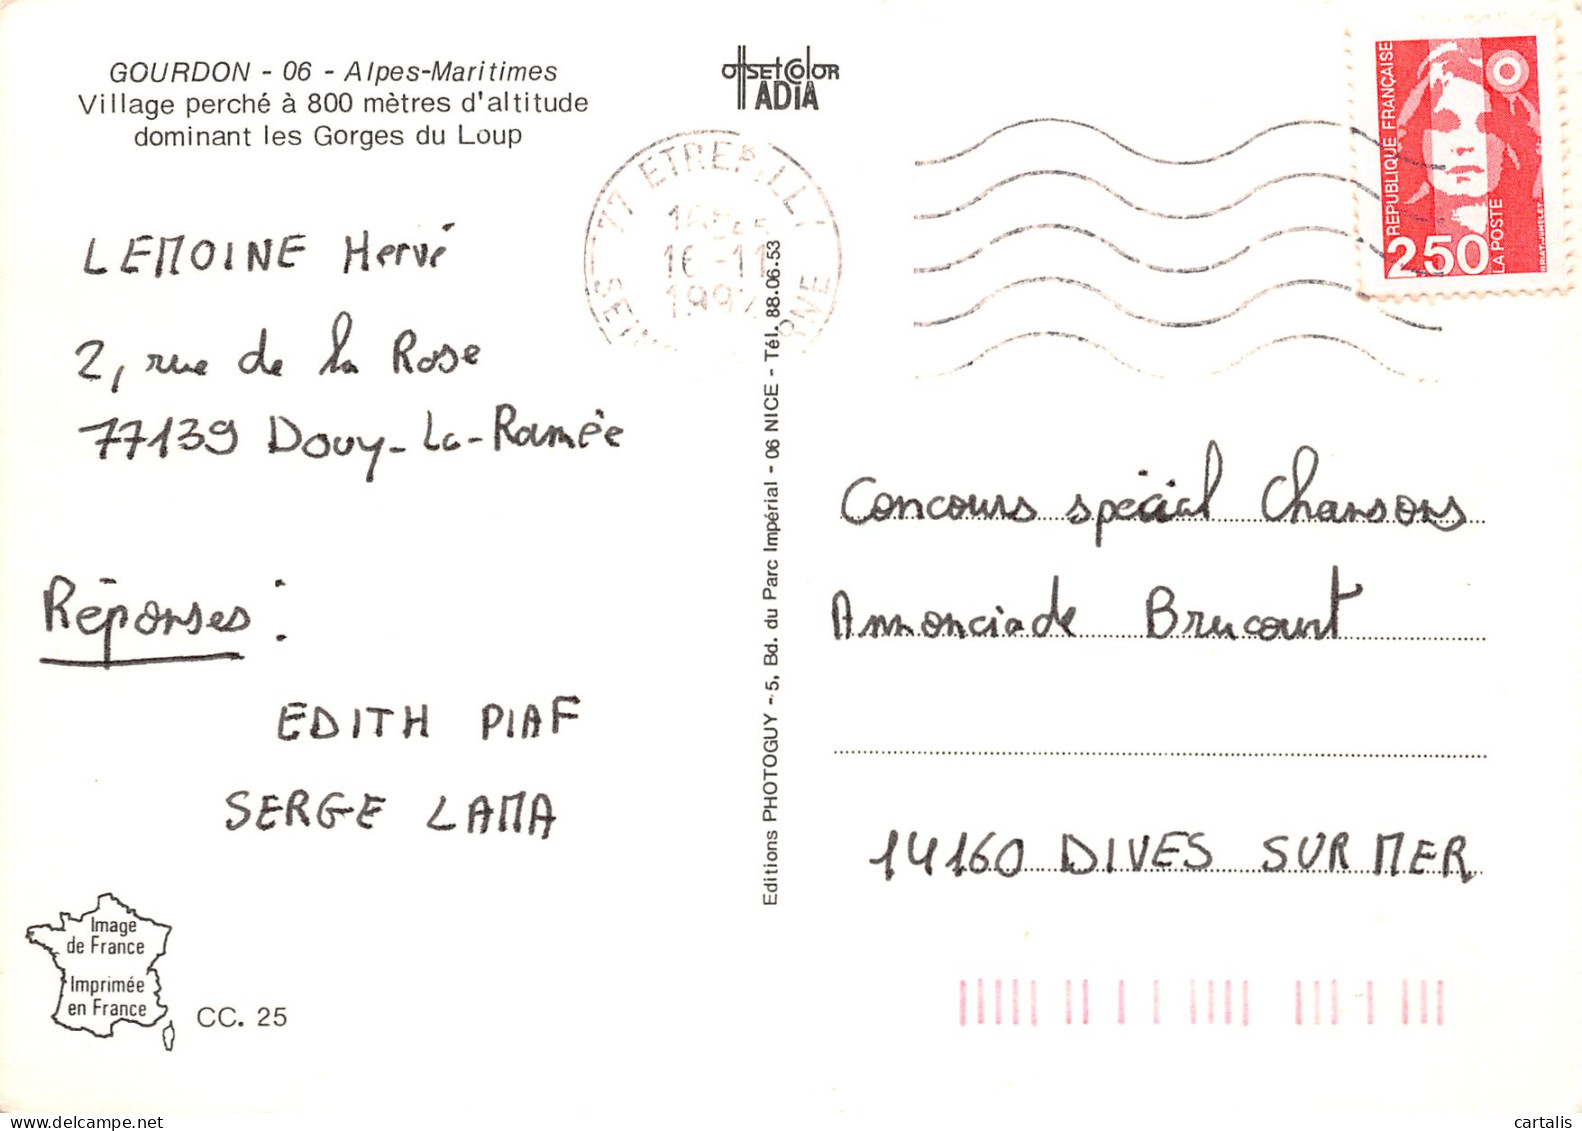 GOURDON - 06 - Alpes-Maritimes
Village perché à 800 mètres d'altitude
dominant les Gorges du Loup
OffSEtColOR
ADIA
77 ETREPILLY
16-11
SEINE
RNE
REPUBLIQUE FRANÇAISE
2,50
LA POSTE
BRIAT-JUMELET
LEMOINE Hervé
2, rue de la Rose
77139 Douy-La-Ramée
Réponses :
EDITH PIAF
SERGE LAMA
Image
de France
Imprimée
en France
CC. 25
Editions PHOTOGUY - 5, Bd. du Parc Impérial - 06 NICE - Tél. 88.06.53
Concours spécial Chansons
Annonciade Brucourt
14160 DIVES SUR MER
cartalis